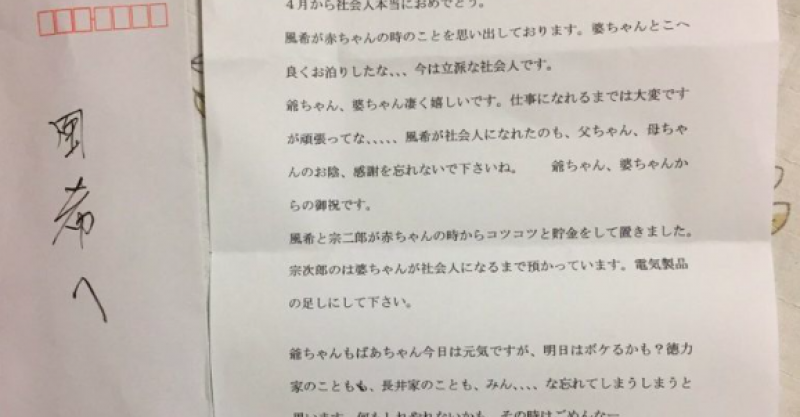 風希へ
4月から社会人本当におめでとう。
風希が赤ちゃんの時のことを思い出しております。婆ちゃんとこへ
良くお泊りしたな、、、今は立派な社会人です。
爺ちゃん、婆ちゃん凄く嬉しいです。仕事になれるまでは大変です
が頑張ってな、、、、、風希が社会人になれたのも、父ちゃん、母ちゃ
んのお陰、感謝を忘れないで下さいね。　爺ちゃん、婆ちゃんか
らの御祝です。
風希と宗二郎が赤ちゃんの時からコツコツと貯金をして置きました。
宗次郎のは婆ちゃんが社会人になるまで預かっています。電気製品
の足しにして下さい。
爺ちゃんもばあちゃん今日は元気ですが、明日はボケるかも？徳力
家のことも、長井家のことも、みん、、、、な忘れてしまうしまうと
思います。何もしれやれないかも、その時はごめんなー